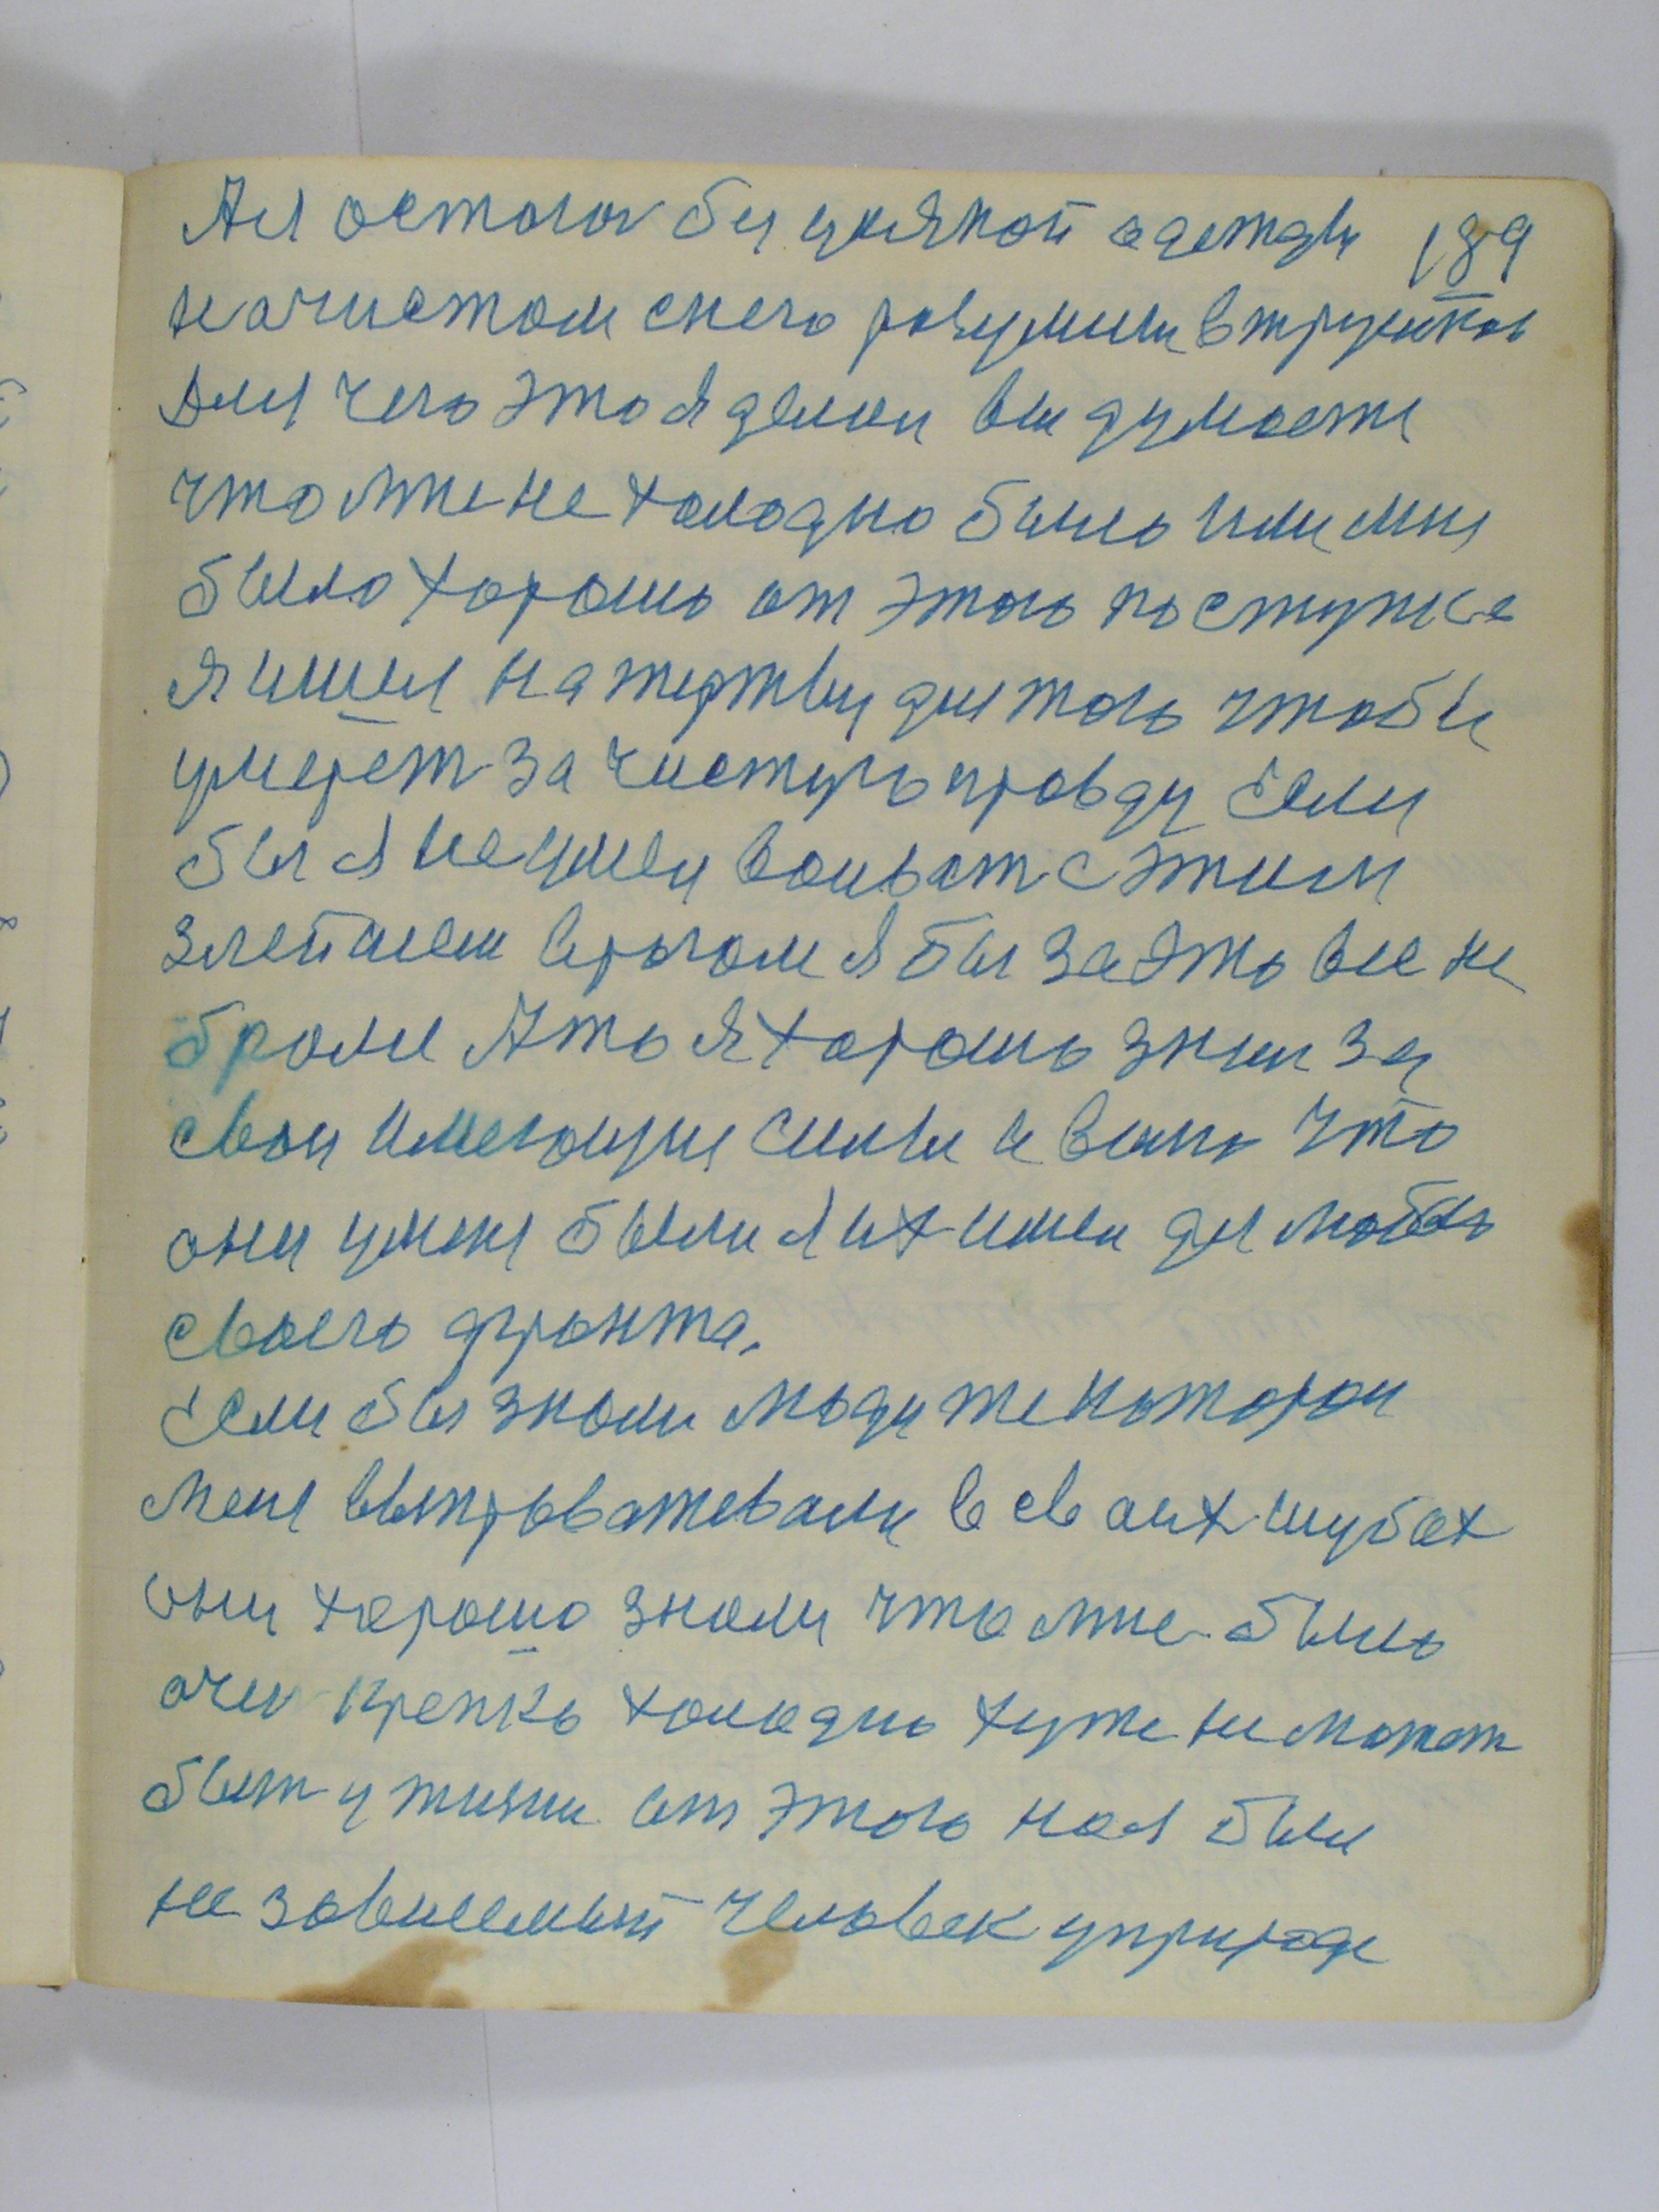 Ая остался без цкякой одежды 189
на чистом снего разумееш в трусиках
Для чего это я делаи вы думаете
что мне не холодно было или мня
было хорошо от этого поступка
я ишел на жертвы для того чтобы
умерет за чистую правду Если
бы я не умел воивать с этим
злейшем врагом я бы за это все не
брался Ато я хорошо знаи за
свои имеющия силы и волю что
они у меня были я их имел для любого
своего фронта.
Если бы знали люди те которои
меня выпроваживали в своих шубах
они хорошо знали что мне было
очен крепко холодно хуже не может
быт у жизни от этого но я был
не зависемый человек у природе